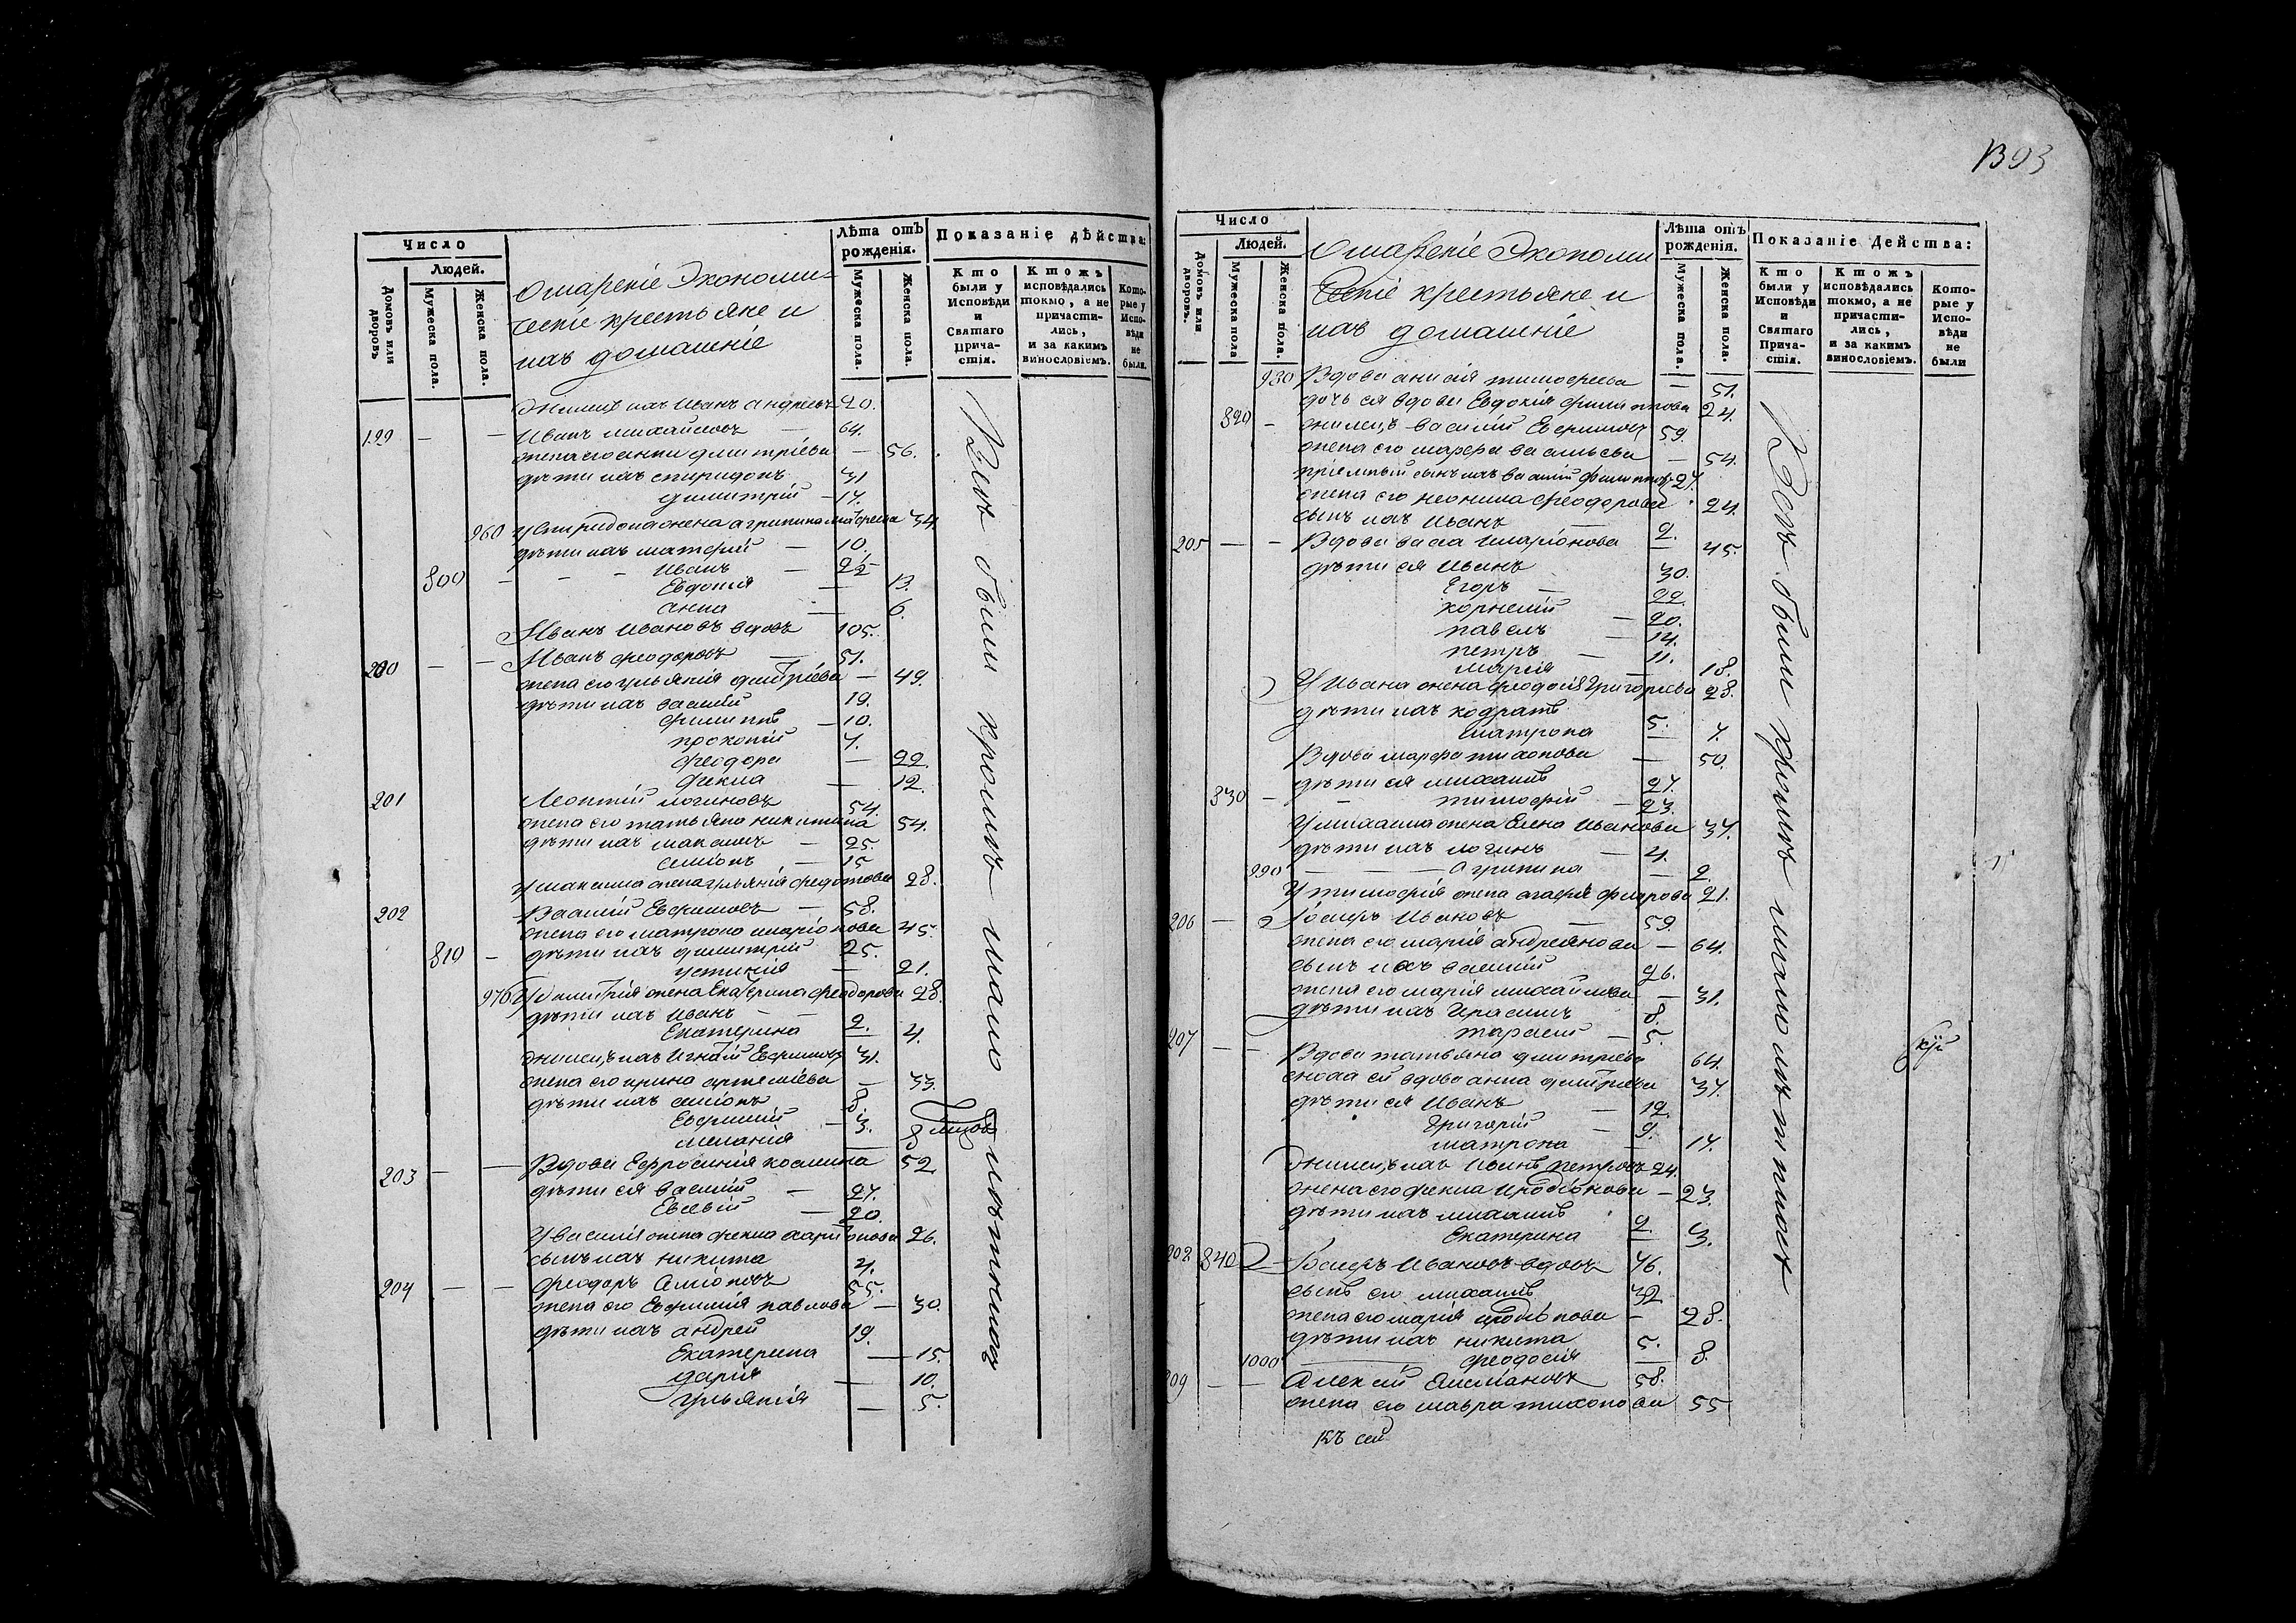 Число
Людей.
Домовъ или дворовъ
Мужеска пола.
Женска пола.
Экономи-
ческіе крестьяне и
ихъ домашніе
Лѣта отъ рождения.
Мужеска пола.
Женска пола.
Показаніе дѣйства:
Кто были у Исповѣди и Святаго Прича-стія.
Ктожъ исповѣдались токмо, а не причасти-лись, и за какимъ винословіемъ.
Кото-рые у Испо-вѣди не были.
ихъ Иванъ андреевъ 20.
199 — — Иванъ михайловъ — 64.
жена его анна димитріева — 56.
дѣти ихъ спиридонъ 31
димитрій — 17.
960 У спиридона жена агрипина матфеева 34.
дѣти ихъ матфей — 10.
800 — — Иванъ —
Евдокія — 13.
анна — 6.
Иванъ Ивановъ вдовъ 105.
200 — — Иванъ феодоровъ — 51.
жена его ульянія димтріева — 49.
дѣти ихъ василій 19.
филиппъ — 10.
прокопій 7.
феодора — 22.
фекла — 12.
201 Леонтій логиновъ 54.
жена его татьяна никитина 54.
дѣти ихъ максимъ — 25.
симіонъ — 15
У максима жена ульянія федотова 28.
202 Василій Евфимовъ — 58.
жена его матрона иларіонова 45.
810 — дѣти ихъ димитрій 25.
устинія — 21.
970 У димитрія жена Екатерина феодорова 28.
дѣти ихъ Иванъ — 2.
Екатерина 4.
ихъ Игнатій Евфимовъ 31.
жена его ирина артеміева — 33.
дѣти ихъ симіонъ 8.
Евфимій — 3.
меланія — 8
203 — — Вдова Ефросинія космина 52
дѣти ея василій — 27.
Евсевій — 20.
У василія жена фекла харитонова 26.
сынъ ихъ никита 4.
204 — — Феодоръ Симіоновъ 55.
жена его Евфимія павлова — 30.
дѣти ихъ андрей 19.
Екатерина — 15.
дарія — 10.
ульянія — 5.
были кромѣ мало лѣтныхъ
1393
Число
Людей.
Домовъ или дворовъ.
Мужеска пола
Женска пола.
Экономи
ческіе крестьяне и
ихъ домашніе
Лѣта отъ рождения.
Мужеска пола.
Женска пола.
Показаніе Действа:
Кто были у Исповѣди и Святаго Прича-стія.
Ктожъ исповѣдались токмо, а не причасти-лись, и за какимъ винословіемъ.
Кото-рые у Испо-вѣди не были
980 Вдова анисія тимофеева — 51.
дочь ея вдова Евдокія филиппова 24.
820 — василій Евфимовъ 59.
жена его марфа васильева — 54.
пріемный сынъ ихъ василій филипповъ 27.
жена его неонила феодорова 24.
сынъ ихъ Иванъ — 2.
205 — — Вдова васса иларіонова — 45.
дѣти ея Иванъ 30.
Егоръ — 22.
корнилій — 20.
павелъ — 14.
петръ — 11.
марія — 18.
У Ивана жена феодосія григорьева 28.
дѣти ихъ кодратъ 5.
матрона — 7.
Вдова марфа тихонова — 50.
дѣти ея михаилъ 27.
830 — — тимофей — 23.
У михаила жена Елена Иванова 37.
дѣти ихъ логинъ — 4.
990 — Агрипина — 2.
У тимофея жена агафія 21.
206 — Ивановъ — 59.
жена его марія андреянова — 64.
сынъ ихъ василій 26.
жена его марія михайлова — 31.
дѣти ихъ Ирасимъ 8.
тарасій — 5.
207 — — Вдова татьяна дмитріева 64.
сноха ея вдова анна дмитріева 37.
дѣти ея Иванъ — 12.
Григорій — 9.
матрона 17.
ихъ петровъ 24.
жена его фекла иродіонова — 23.
дѣти ихъ михаилъ 2.
Екатерина — 3.
208 840 Ивановъ вдовъ 76.
сынъ его михаилъ 32
жена его марія иродіонова — 28.
дѣти ихъ никита 5.
1000 — феодосія — 8.
209 — — Алексій 58.
жена его мавра тихонова 55
были кромѣ мало лѣтныхъ